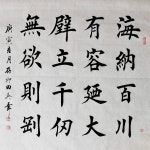 海納百川
有容廼大
壁立千仞
無欲則剛
庚寅